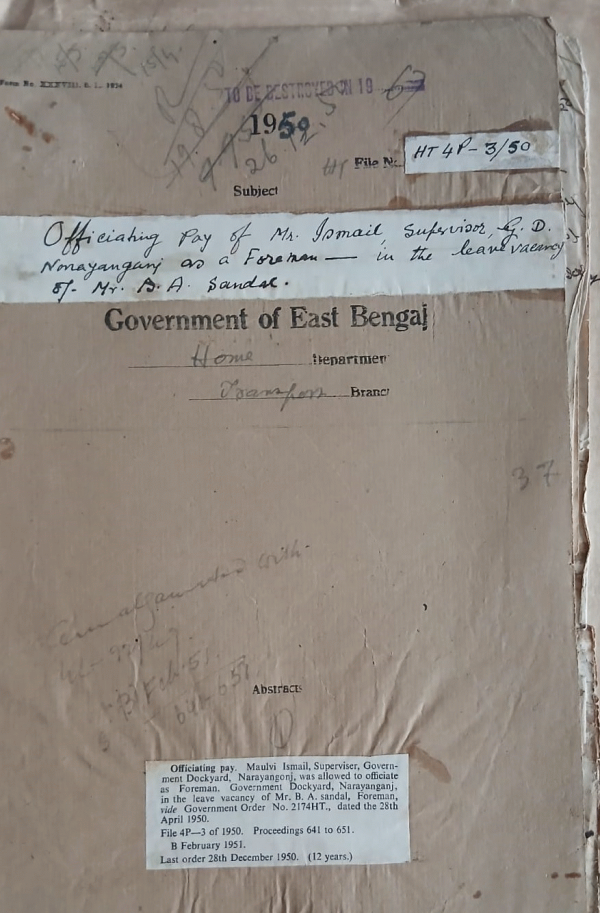 15/4
Form No. XXXVIII. E. 1., 1934
TO BE DESTROYED IN 19 63
1950
26.12.5
File No. HT 4P-3/50
Subject
Officiating Pay of Mr. Ismail Supervisor, G. D.
Narayanganj as a Foreman — in the leave vacancy
of Mr. B. A. Sandal.
Government of East Bengal
Home Department
Transport Branch
37
amalgamated with
B/Feb. 51.
641-651
Abstract
Officiating pay. Maulvi Ismail, Superviser, Govern-
ment Dockyard, Narayangonj, was allowed to officiate
as Foreman, Government Dockyard, Narayanganj,
in the leave vacancy of Mr. B. A. sandal, Foreman,
vide Government Order No. 2174HT., dated the 28th
April 1950.
File 4P—3 of 1950. Proceedings 641 to 651.
B February 1951.
Last order 28th December 1950. (12 years.)